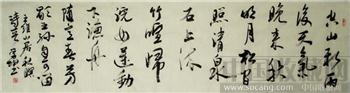 空山新雨
後天氣
晚来秋
明月松间
照清泉
石上流
竹喧归
浣女莲动
下渔舟
随意春芳
歇王孙自可留
王维山居秋暝